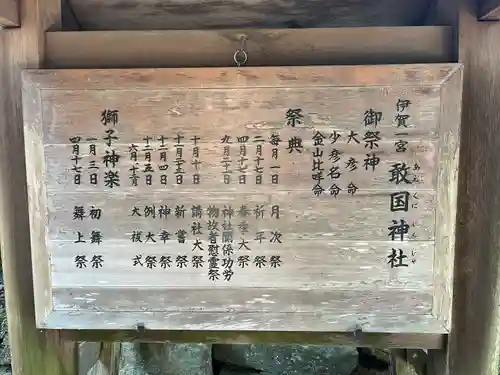 伊賀一宮 敢国神社
あえくに じんじゃ
御祭神
大彦命
少彦名命
金山比咩命
祭典
毎月一日 月次祭
二月十七日 祈年祭
四月十七日 春季大祭
九月二十日 神社関係功労物故者慰霊祭
十月十日 講社大祭
十一月二十三日 新嘗祭
十二月四日 神幸祭
十二月五日 例大祭
十二月
六月 大祓式
獅子神楽
一月三日 初舞祭
四月十七日 舞上祭